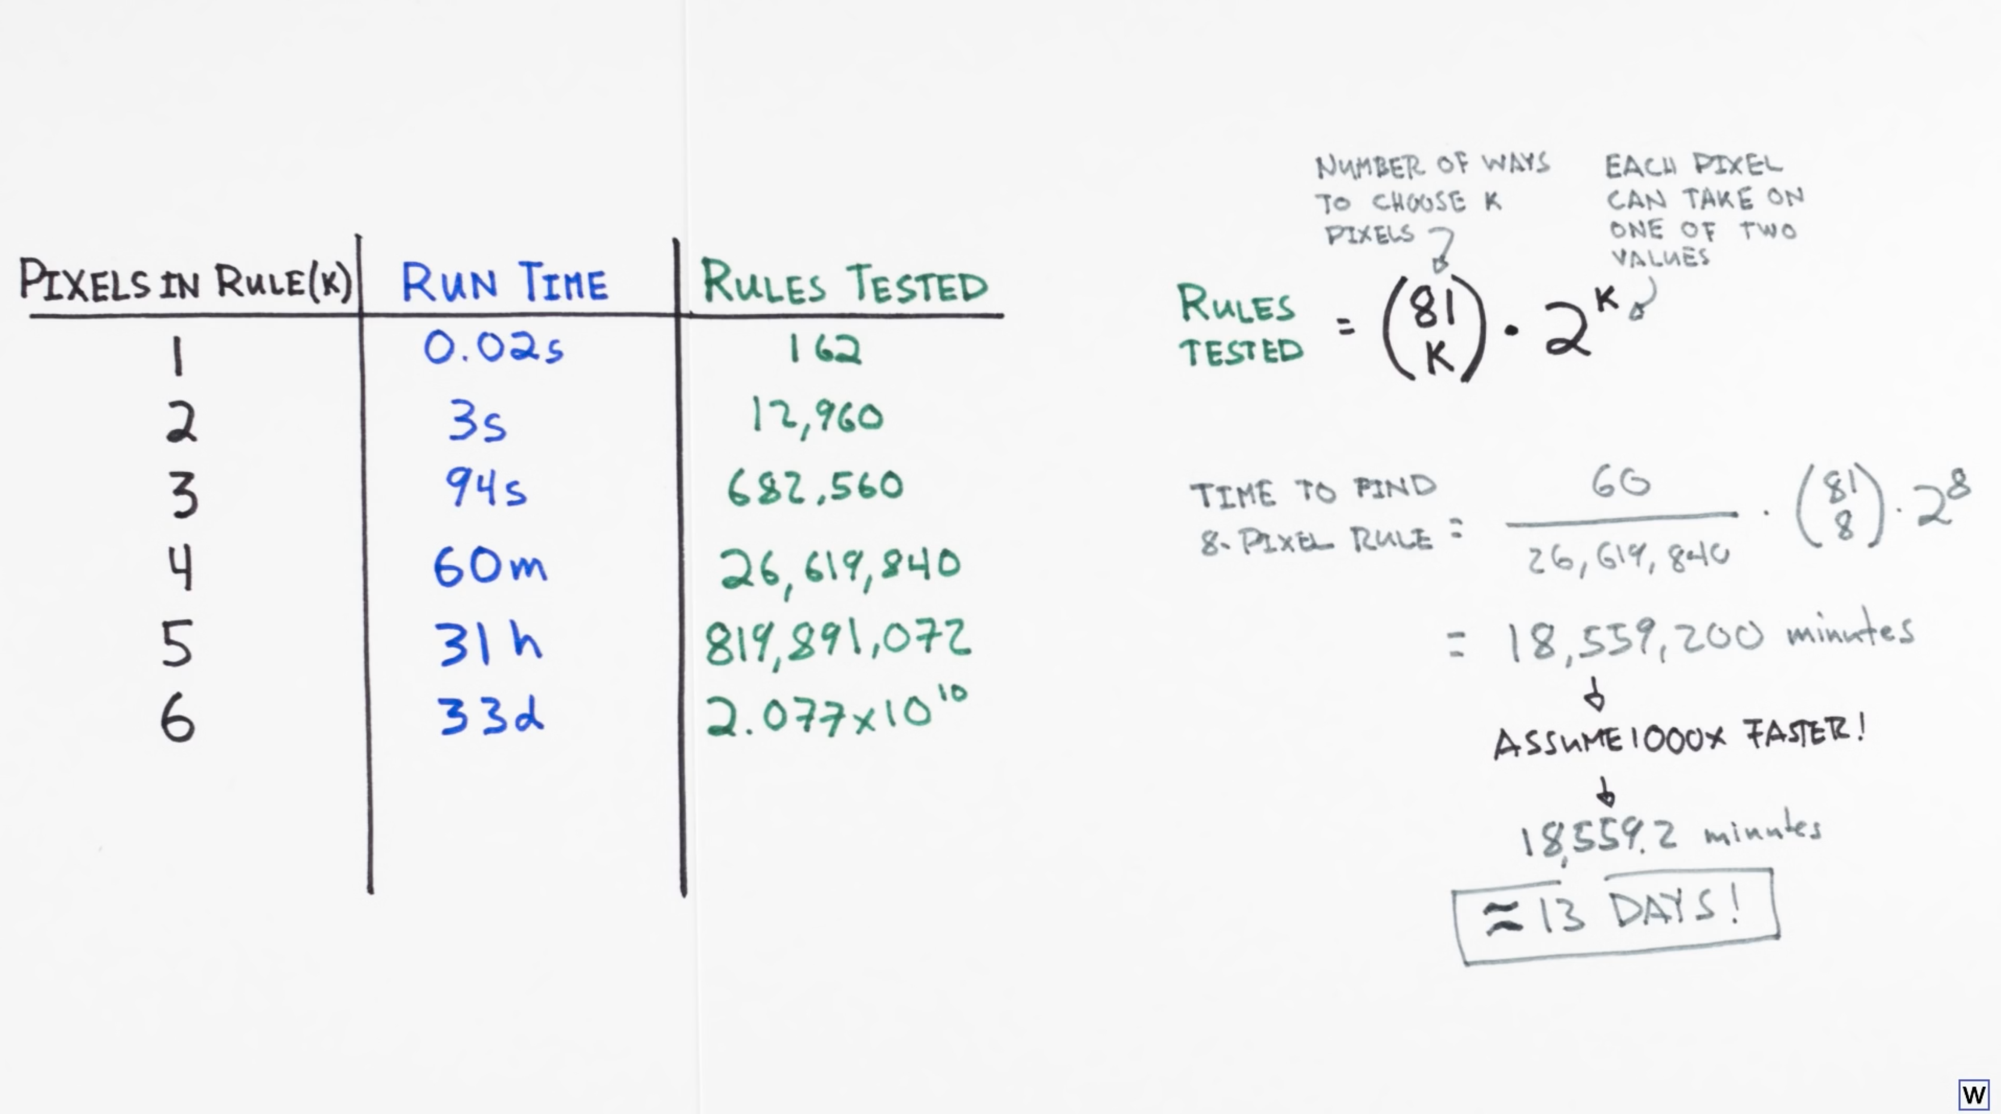 PIXELS IN RULE(K) RUN TIME RULES TESTED
1 0.02s 162
2 3s 12,960
3 94s 682,560
4 60m 26,619,840
5 31h 819,891,072
6 33d 2.077x10^10
NUMBER OF WAYS
TO CHOOSE K
PIXELS
EACH PIXEL
CAN TAKE ON
ONE OF TWO
VALUES
RULES
TESTED = (81 K) · 2^K
TIME TO FIND
8-PIXEL RULE = 60 / 26,619,840 · (81 8) · 2^8
= 18,559,200 minutes
ASSUME 1000X FASTER!
18,559.2 minutes
≈ 13 DAYS!
W